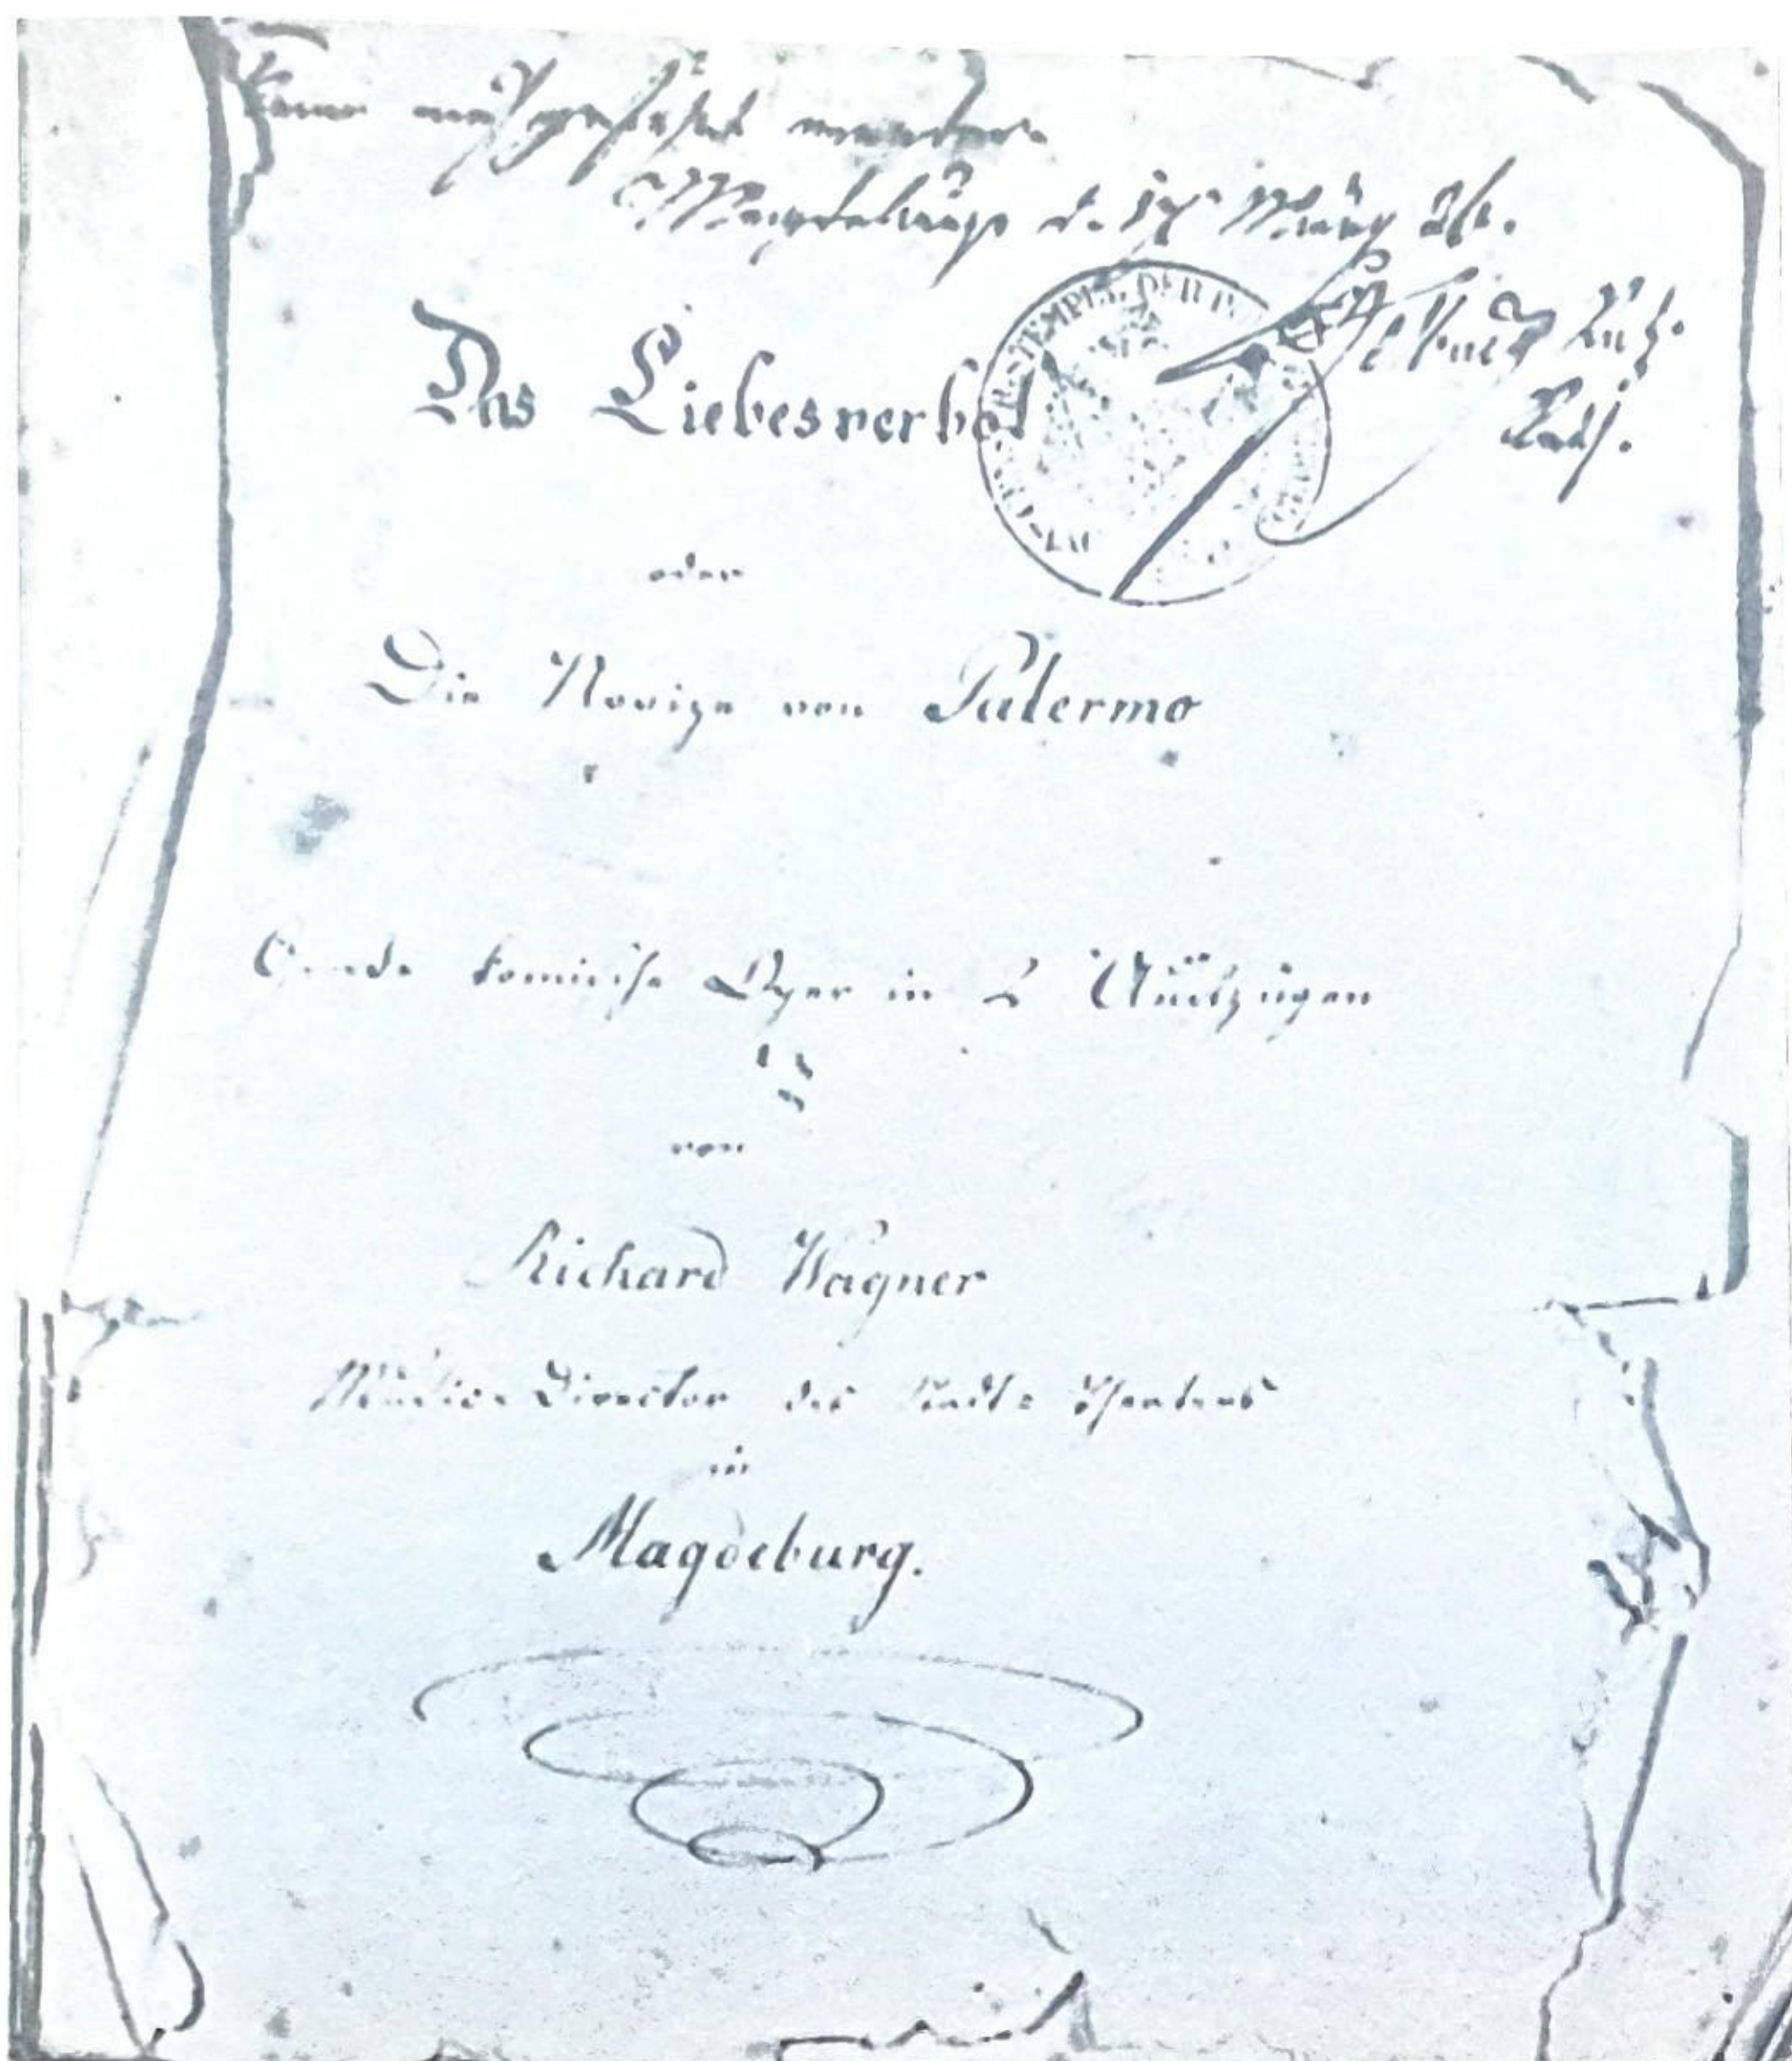 Kann aufgeführt werden.
Magdeburg d. 17 März 36.
Das Liebesverbot
oder
Die Novize von Palermo
komische Oper in 2 Aufzügen
von
Richard Wagner
Music-Director des Stadt-Theaters
in
Magdeburg.